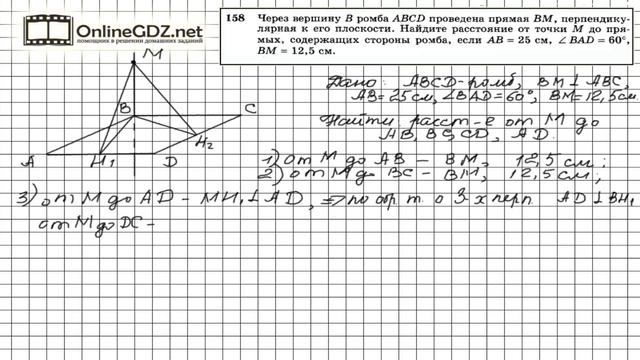 OnlineGDZ.net
помощник в решении домашних заданий
158 Через вершину B ромба ABCD проведена прямая BM, перпендику-
лярная к его плоскости. Найдите расстояние от точки M до пря-
мых, содержащих стороны ромба, если AB = 25 см, ∠ BAD = 60°,
BM = 12,5 см.
M
B
C
A
H₁
D
H₂
Дано: ABCD-ромб, BM⊥ABC,
AB=25см,∠BAD=60°, BM=12,5см.
Найти расст-е от M до
AB, BC, CD, AD.
1) от M до AB – BM, 12,5 см;
2) от M до BC – BM, 12,5 см;
3) от M до AD – MH₁⊥AD, ⇒ по обр т. о 3-х перп. AD⊥BH₁
от M до DC –